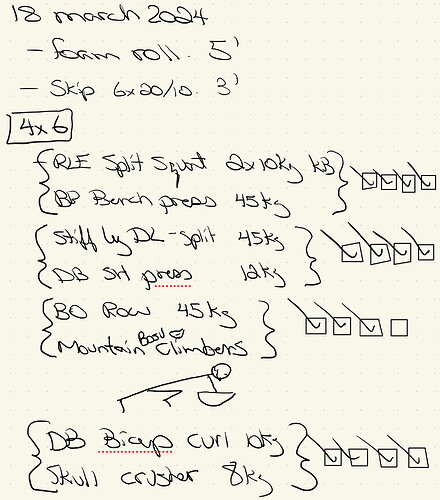 18 march 2024
- foam roll. 5'
- Skip 6x20/10. 3'
4x6
RLE Split Squat 2x10kg KB
BP Bench press 45kg
Stiff leg DL-split 45kg
DB SH press 12kg
BO Row 45kg
Mountain Bosu Climbers
DB Bicup curl 10kg
Skull crusher 8kg